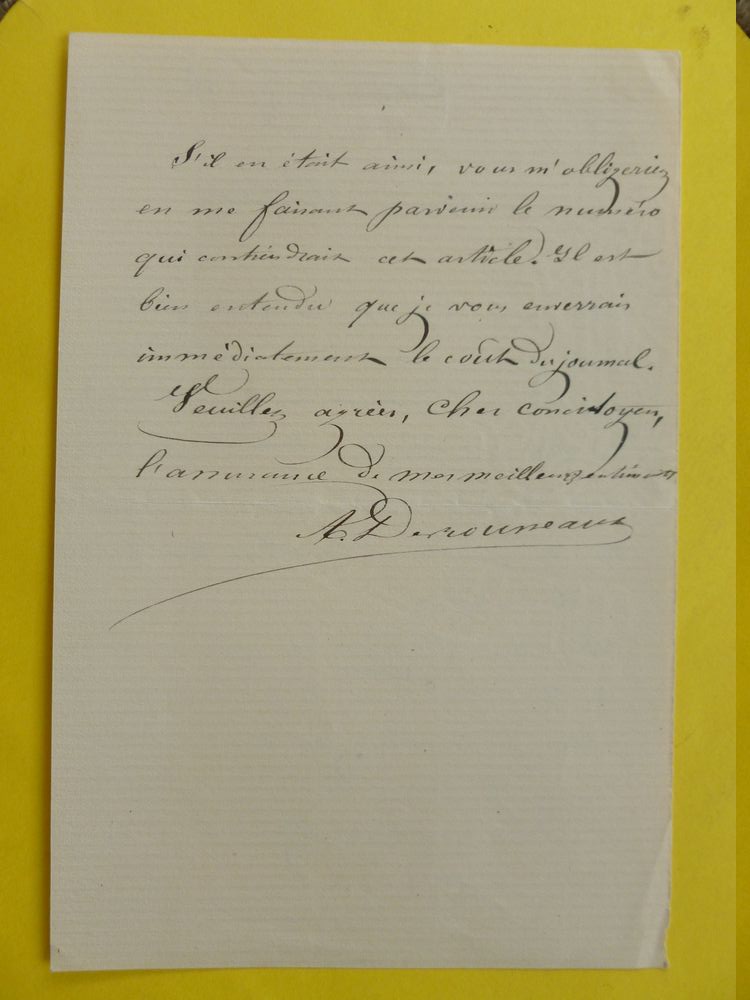 S'il en était ainsi, vous m'obligeriez
en me faisant parvenir le numéro
qui contiendrait cet article. Il est
bien entendu que je vous enverrais
immédiatement le coût du journal.
Veuillez agréer, Cher concitoyen,
l'assurance de mes meilleurs sentiments
A.